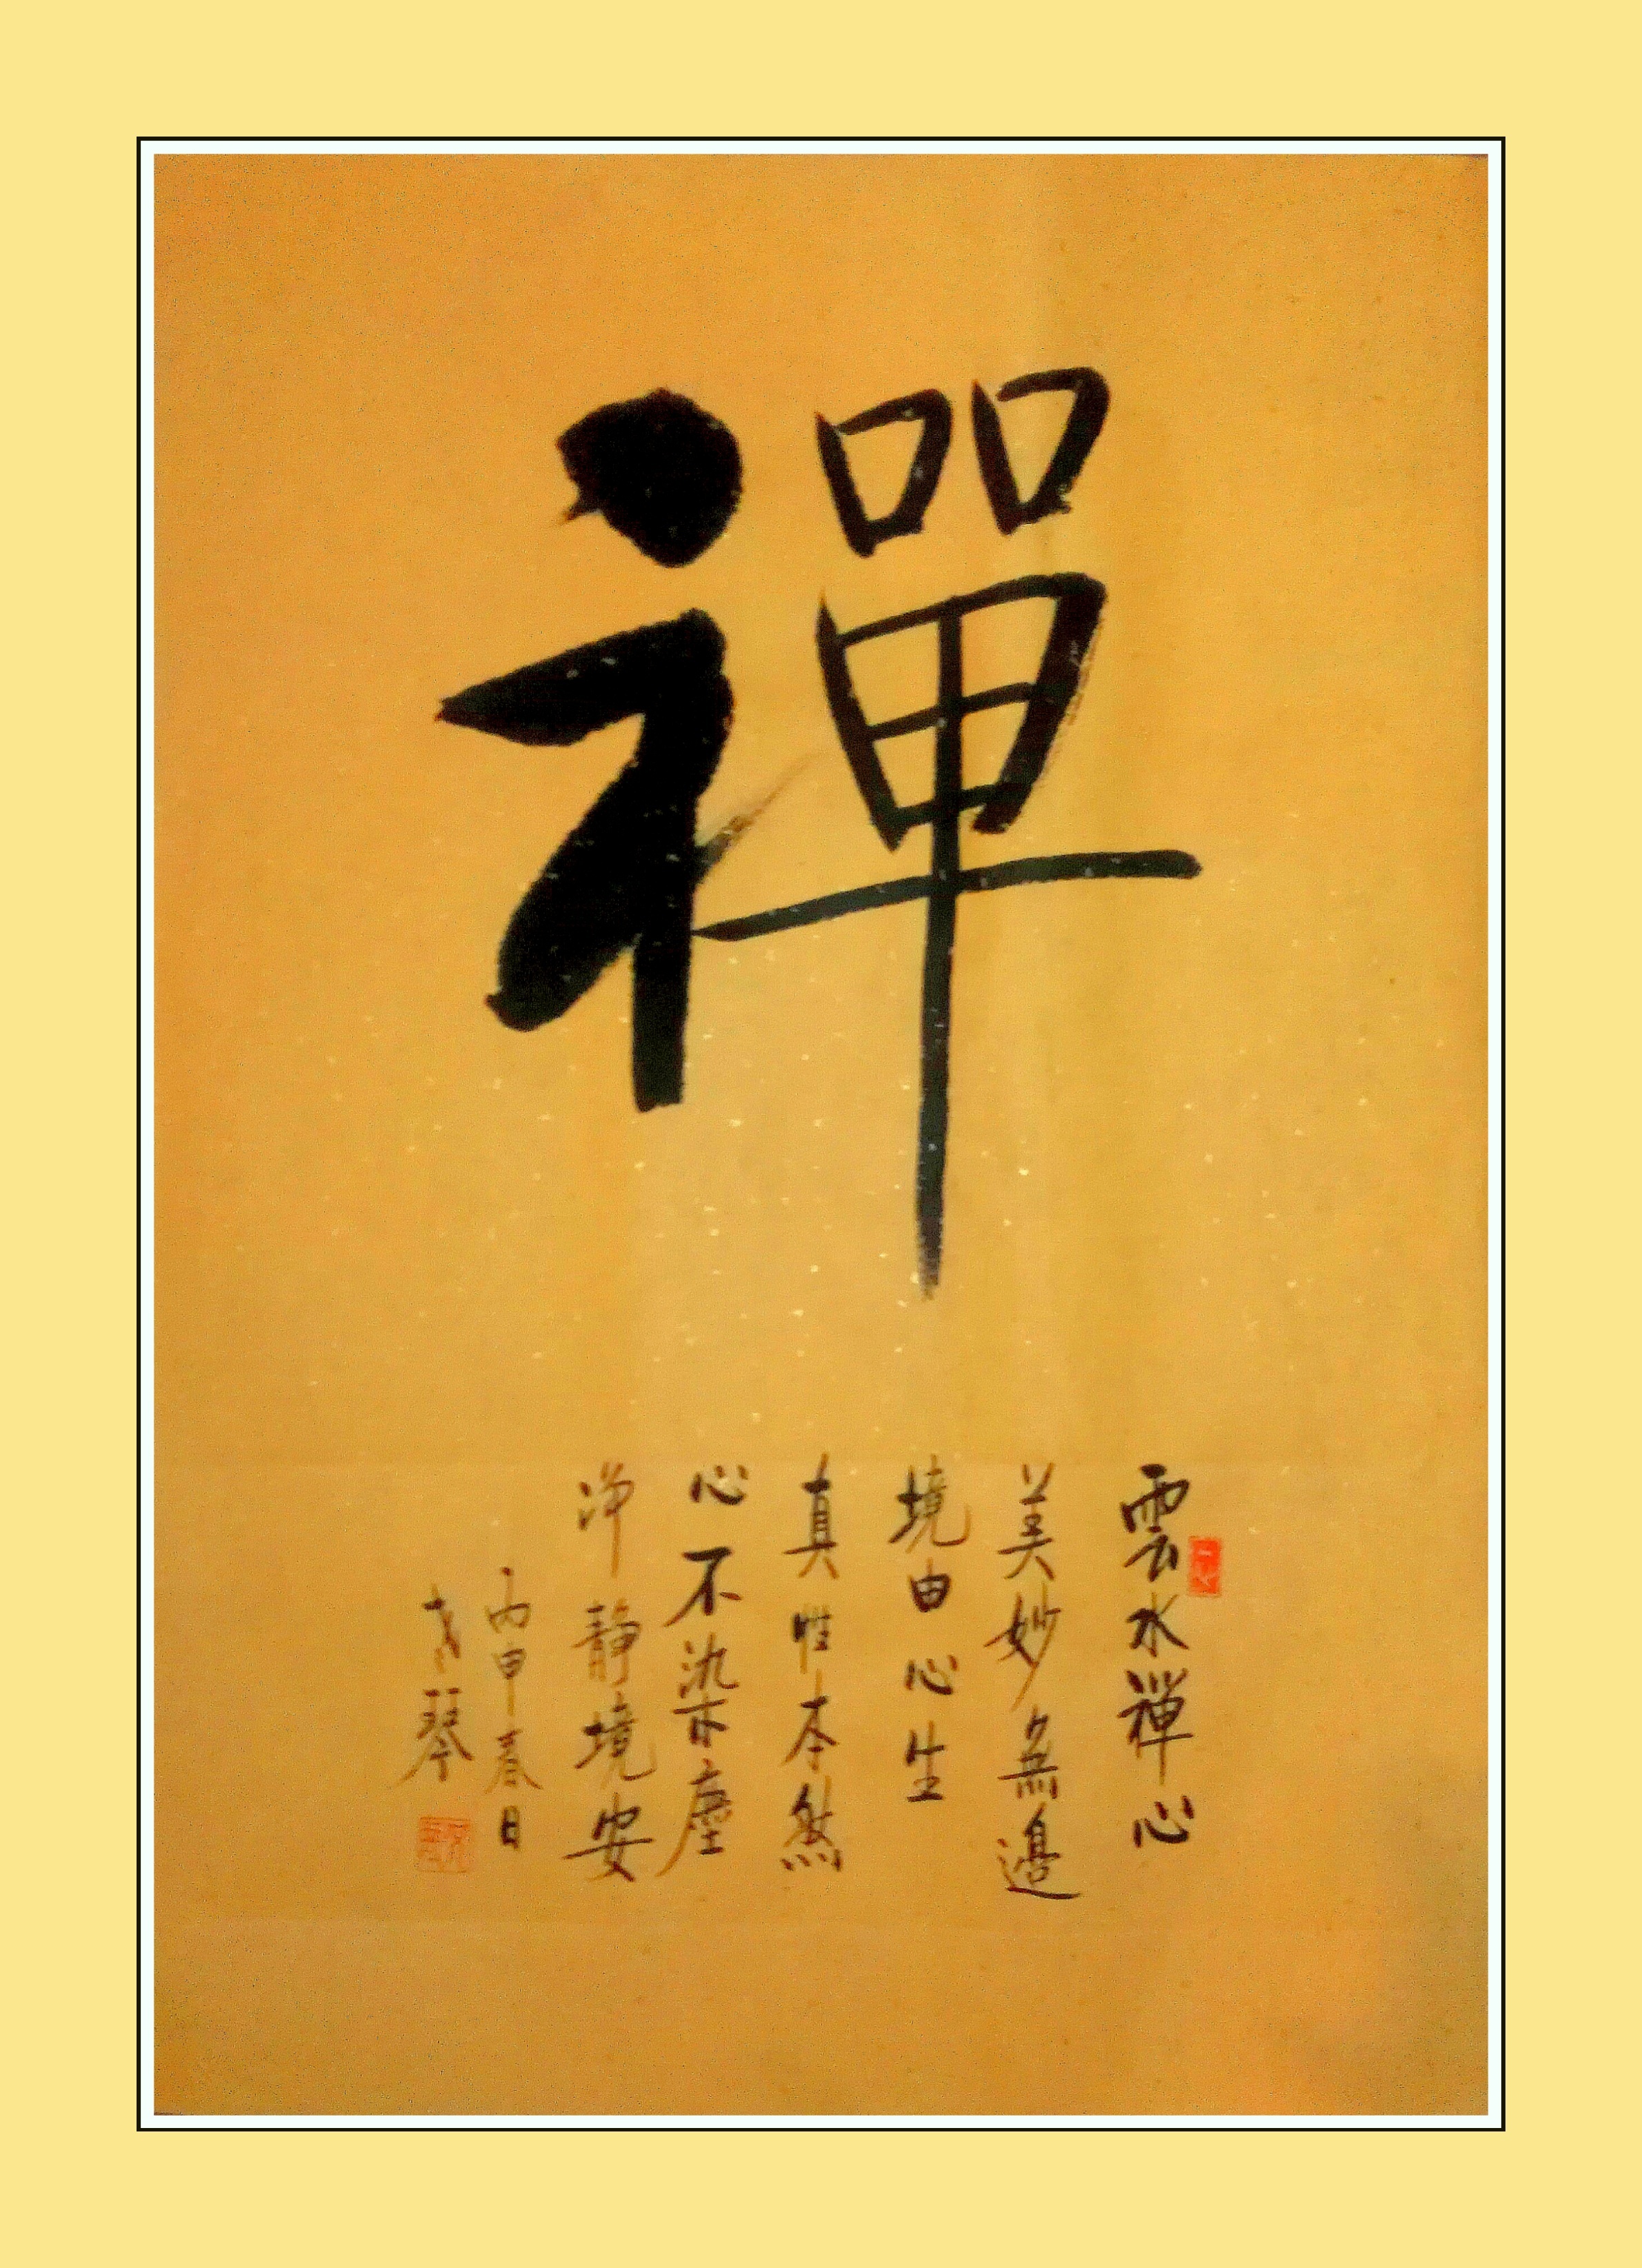 禪
雲水禪心
美妙無邊
境由心生
真性本然
心不染塵
净靜境安
丙申春日
琴